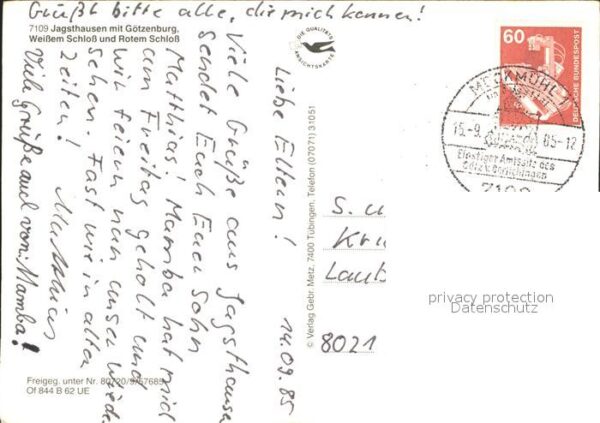 Grüßt bitte alle, die mich kennen!
7109 Jagsthausen mit Götzenburg,
Weißem Schloß und Rotem Schloß
DIE QUALITÄTS
ANSICHTSKARTE
14.09.85
Liebe Eltern!
Viele Grüße aus Jagsthausen
sendet Euch Euer Sohn
Matthias! Mamba hat mich
am Freitag geholt und
wir feiern nun unser Wieder-
sehen. Fast wie in alten
Zeiten!
Matthias
Viele Grüße auch von: Mamba!
© Verlag Gebr. Metz, 7400 Tübingen, Telefon (07071) 31051
60
DEUTSCHE BUNDESPOST
MÖCKMÜHL 1
15.-9. 85-12
Einstiger Amtssitz des
Götz v. Berlichingen
7109
S. u
Kru
Laub
8021
privacy protection
Datenschutz
Freigeg. unter Nr.
Of 844 B 62 UE